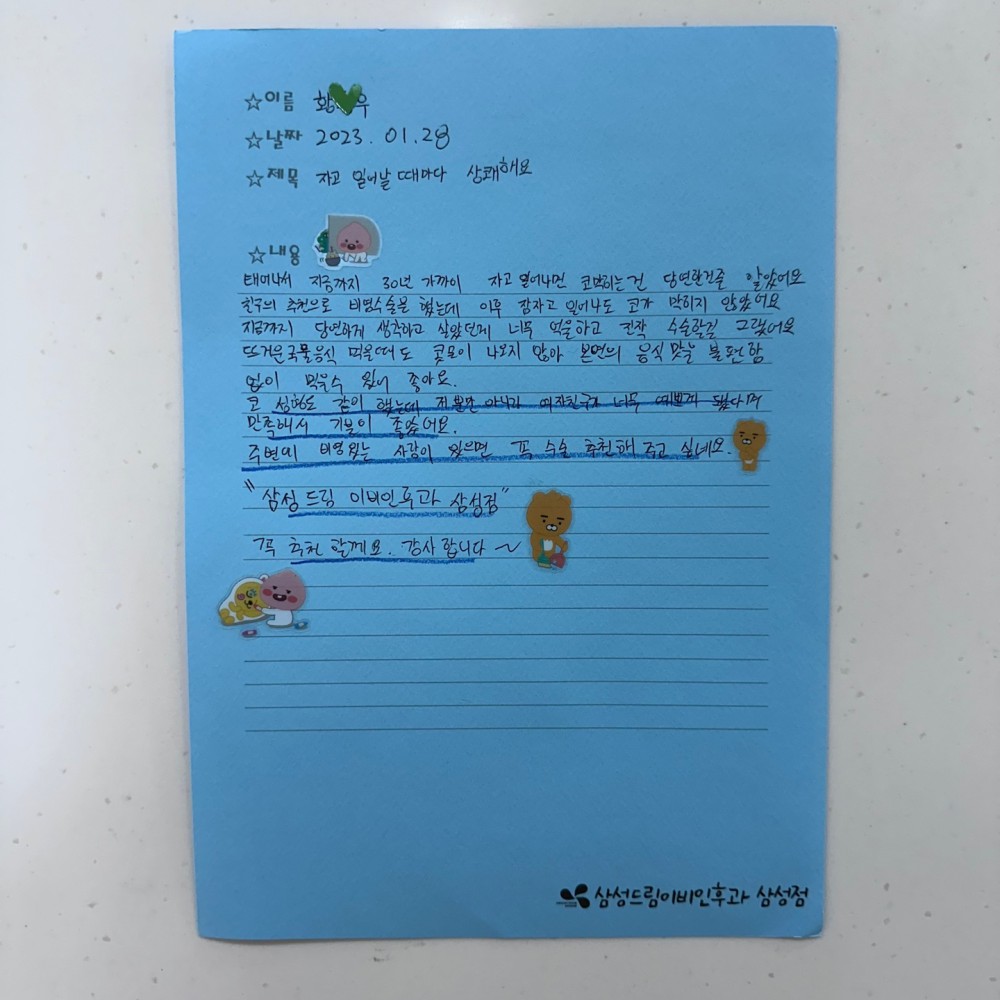 ☆이름 황 우
☆날짜 2023. 01. 28
☆제목 자고 일어날 때마다 상쾌해요
☆내용
태어나서 지금까지 30년 가까이 자고 일어나면 코막히는건 당연한건줄 알았어요
친구의 추천으로 비염수술을 했는데 이후 잠자고 일어나도 코가 막히지 않았어요
지금까지 당연하게 생각하고 살았던게 너무 억울하고 진작 수술할걸 그랬어요
뜨거운 국물음식 먹을때도 콧물이 나오지 않아 본연의 음식맛을 불편함
없이 먹을수 있어 좋아요.
코 성형도 같이 했는데 저뿐만 아니라 여자친구가 너무 예쁘게 됐다며
만족해서 기분이 좋았어요.
주변에 비염있는 사람이 있으면 꼭 수술 추천해 주고 싶네요.
"삼성드림 이비인후과 삼성점"
꼭 추천 할께요. 감사합니다~
삼성드림이비인후과 삼성점